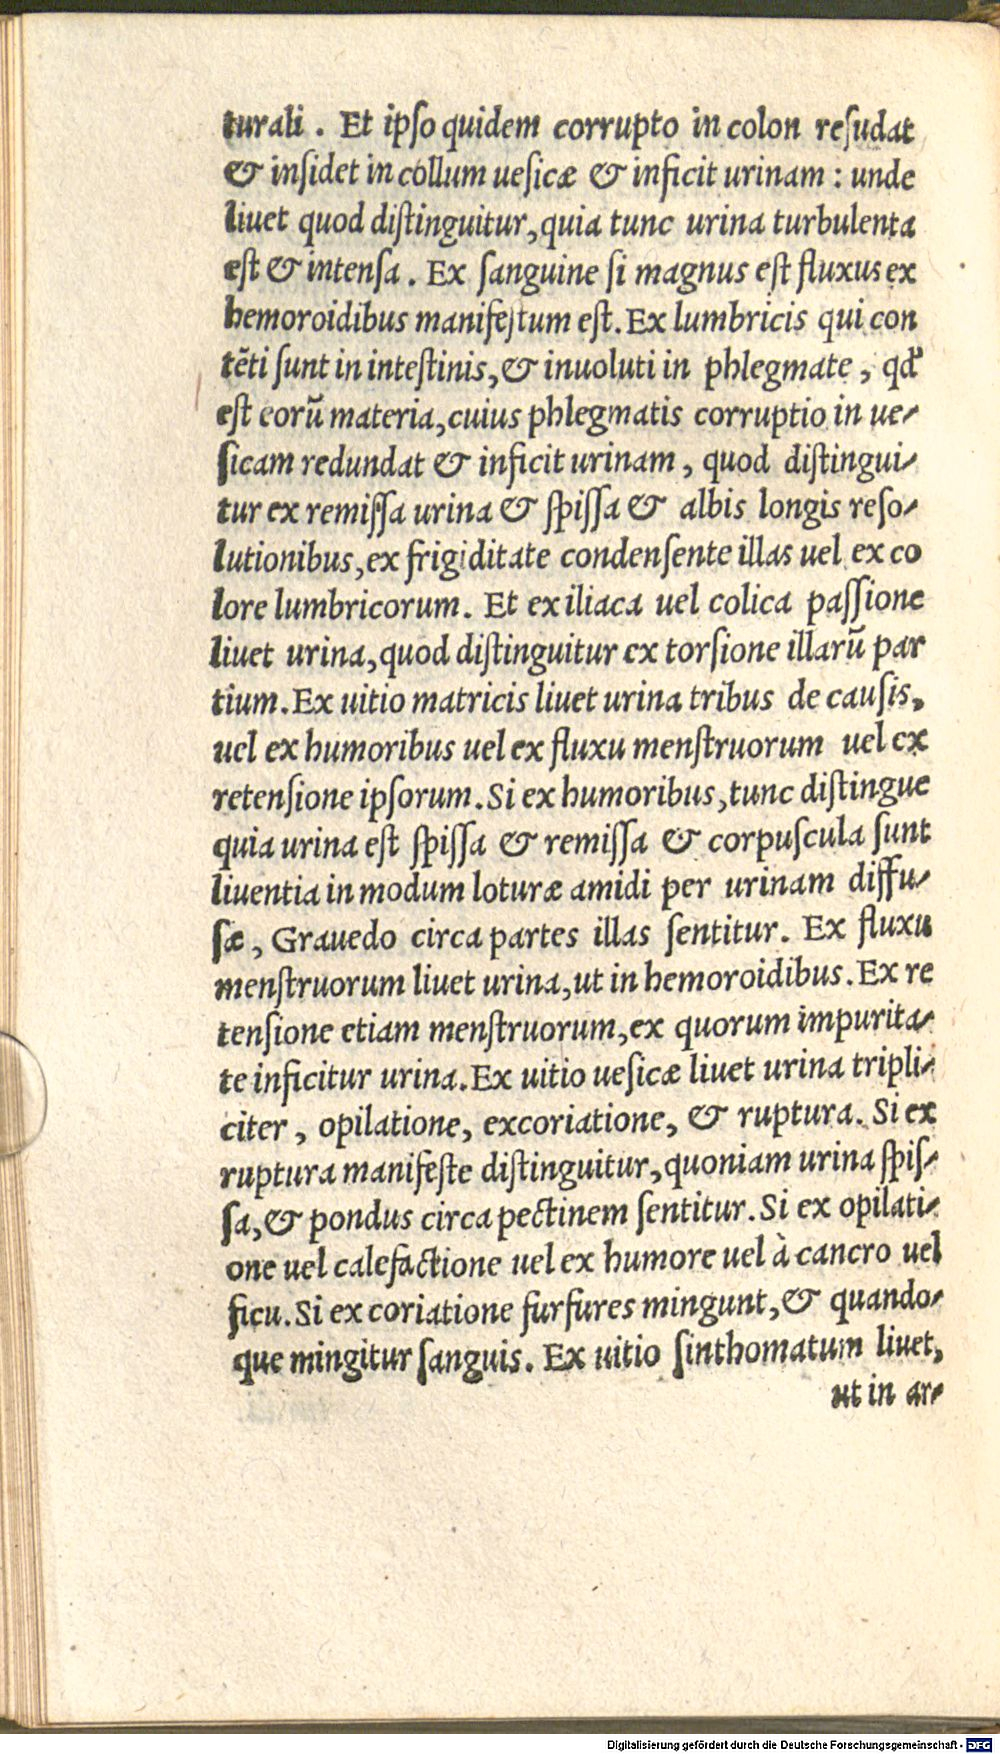 turali. Et ipso quidem corrupto in colon resudat
& insidet in collum uesicæ & inficit urinam : unde
liuet quod distinguitur, quia tunc urina turbulenta
est & intensa. Ex sanguine si magnus est fluxus ex
hemoroidibus manifestum est. Ex lumbricis qui con
tēti sunt in intestinis, & inuoluti in phlegmate, qđ
est eorũ materia, cuius phlegmatis corruptio in ue-
sicam redundat & inficit urinam, quod distingui-
tur ex remissa urina & spissa & albis longis reso-
lutionibus, ex frigiditate condensente illas uel ex co
lore lumbricorum. Et ex iliaca uel colica passione
liuet urina, quod distinguitur ex torsione illarũ par
tium. Ex uitio matricis liuet urina tribus de causis,
uel ex humoribus uel ex fluxu menstruorum uel ex
retensione ipsorum. Si ex humoribus, tunc distingue
quia urina est spissa & remissa & corpuscula sunt
liuentia in modum loturæ amidi per urinam diffu-
sæ, Grauedo circa partes illas sentitur. Ex fluxu
menstruorum liuet urina, ut in hemoroidibus. Ex re
tensione etiam menstruorum, ex quorum impurita-
te inficitur urina. Ex uitio uesicæ liuet urina tripli-
citer, opilatione, excoriatione, & ruptura. Si ex
ruptura manifeste distinguitur, quoniam urina spis-
sa, & pondus circa pectinem sentitur. Si ex opilati-
one uel calefactione uel ex humore uel à cancro uel
ficu. Si ex coriatione furfures mingunt, & quando-
que mingitur sanguis. Ex uitio sinthomatum liuet,
ut in ar-
Digitalisierung gefördert durch die Deutsche Forschungsgemeinschaft - DFG